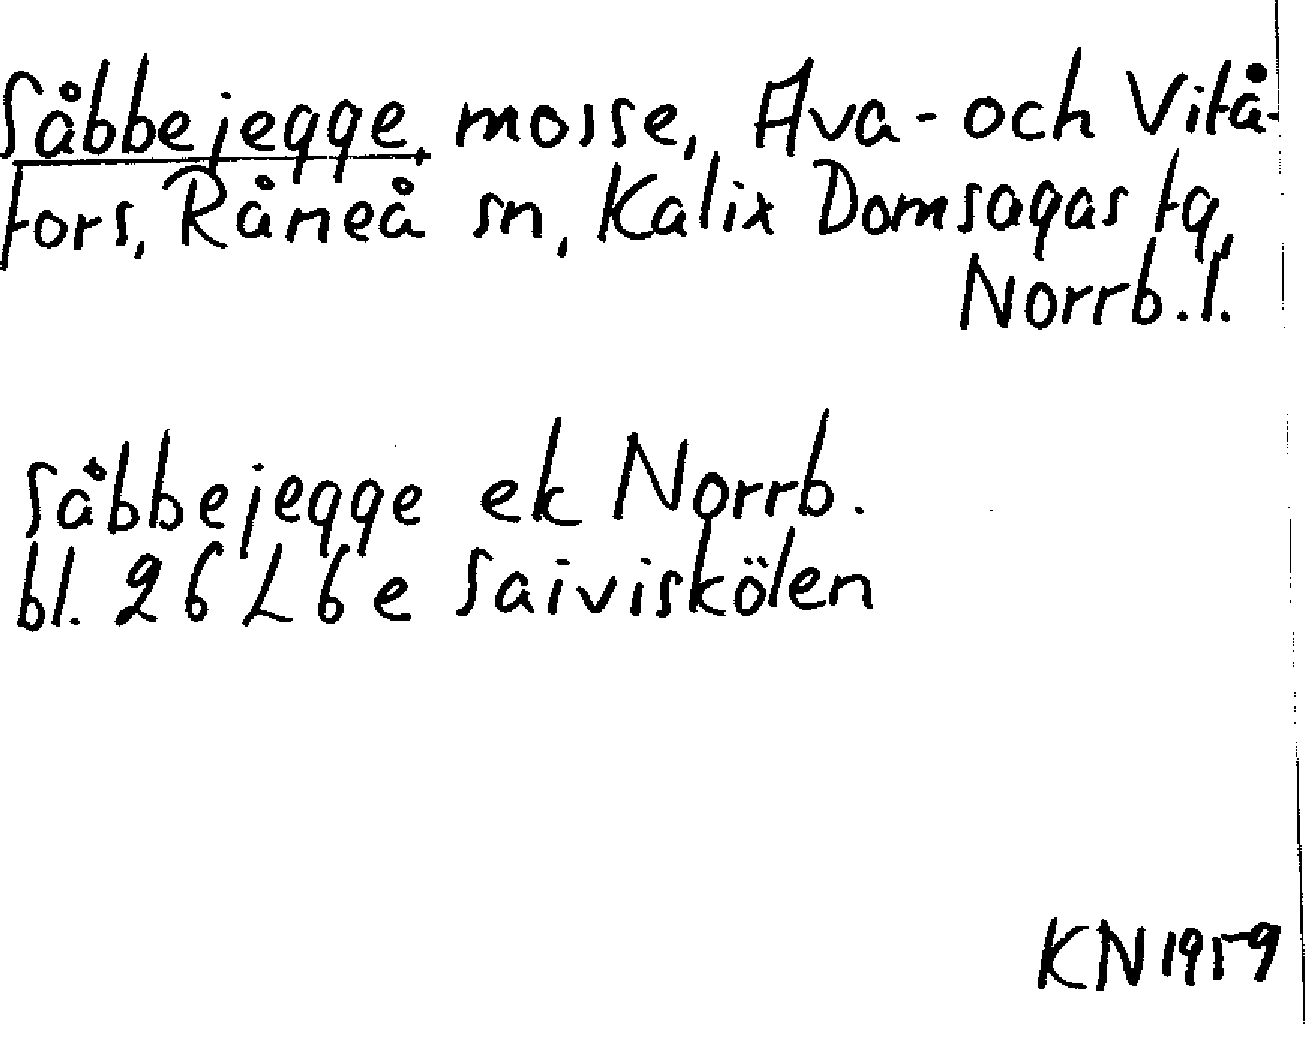 Såbbejegge, mosse, Ava- och Vitå-
fors, Råneå sn, Kalix Domsagas tg,
Norrb. l.
Såbbejegge ek Norrb.
bl. 26 L 6 e Saiviskölen
KN 1959